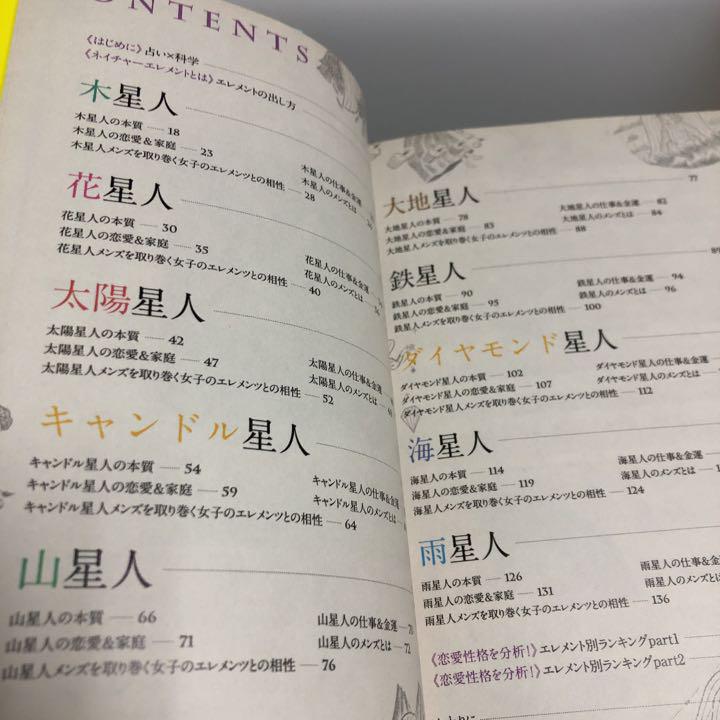 ONTENTS
《はじめに》占い×科学
《ネイチャーエレメントとは》エレメントの出し方
木星人
木星人の本質 18
木星人の恋愛&家庭 23
木星人メンズを取り巻く女子のエレメンツとの相性 28
木星人の仕事&金運
木星人のメンズとは
花星人
花星人の本質 30
花星人の恋愛&家庭 35
花星人メンズを取り巻く女子のエレメンツとの相性 40
花星人の仕事&金運
花星人のメンズとは
太陽星人
太陽星人の本質 42
太陽星人の恋愛&家庭 47
太陽星人メンズを取り巻く女子のエレメンツとの相性 52
太陽星人の仕事&金運
太陽星人のメンズとは
キャンドル星人
キャンドル星人の本質 54
キャンドル星人の恋愛&家庭 59
キャンドル星人メンズを取り巻く女子のエレメンツとの相性 64
キャンドル星人の仕事&金運
キャンドル星人のメンズとは
山星人
山星人の本質 66
山星人の恋愛&家庭 71
山星人メンズを取り巻く女子のエレメンツとの相性 76
山星人の仕事&金運 70
山星人のメンズとは 72
77
大地星人
大地星人の本質 78
大地星人の恋愛&家庭 83
大地星人メンズを取り巻く女子のエレメンツとの相性 88
大地星人の仕事&金運 82
大地星人のメンズとは 84
89
鉄星人
鉄星人の本質 90
鉄星人の恋愛&家庭 95
鉄星人メンズを取り巻く女子のエレメンツとの相性 100
鉄星人の仕事&金運 94
鉄星人のメンズとは 96
ダイヤモンド星人
ダイヤモンド星人の本質 102
ダイヤモンド星人の恋愛&家庭 107
ダイヤモンド星人メンズを取り巻く女子のエレメンツとの相性 112
ダイヤモンド星人の仕事&金運
ダイヤモンド星人のメンズとは
海星人
海星人の本質 114
海星人の恋愛&家庭 119
海星人メンズを取り巻く女子のエレメンツとの相性 124
海星人の仕事&金運
海星人のメンズとは
雨星人
雨星人の本質 126
雨星人の恋愛&家庭 131
雨星人メンズを取り巻く女子のエレメンツとの相性 136
雨星人の仕事&金
雨星人のメンズとは
《恋愛性格を分析!》エレメント別ランキングpart1
《恋愛性格を分析!》エレメント別ランキングpart2